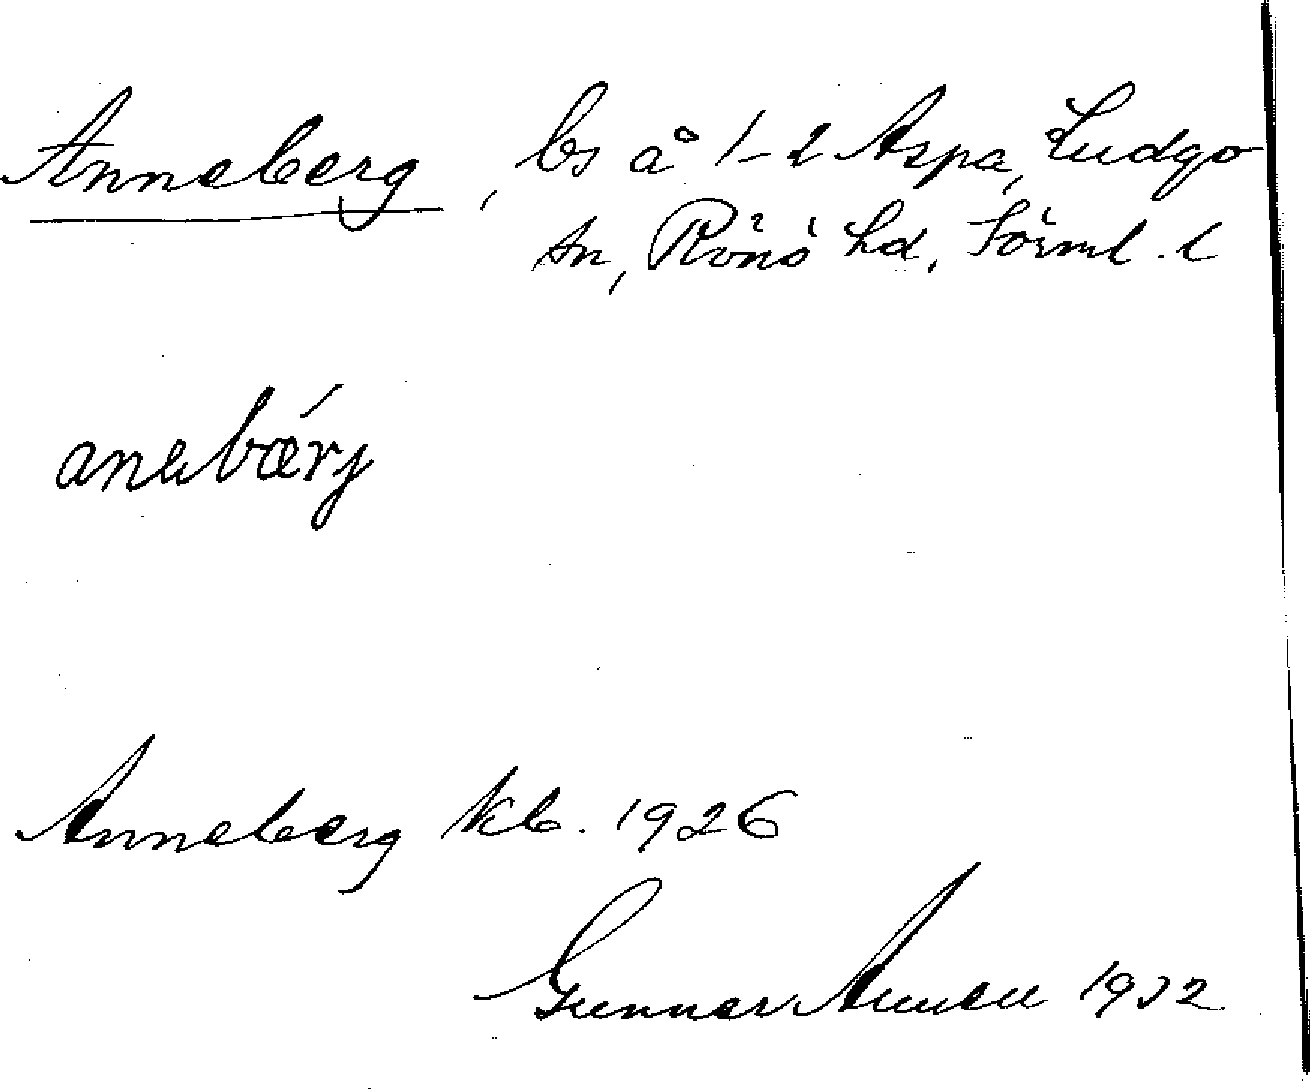 Anneberg, bs å 1-2 Aspa, Ludgo
sn, Rönö hd, Sörml. l
anebǽrj
Anneberg kb. 1926
Gunnar 1932